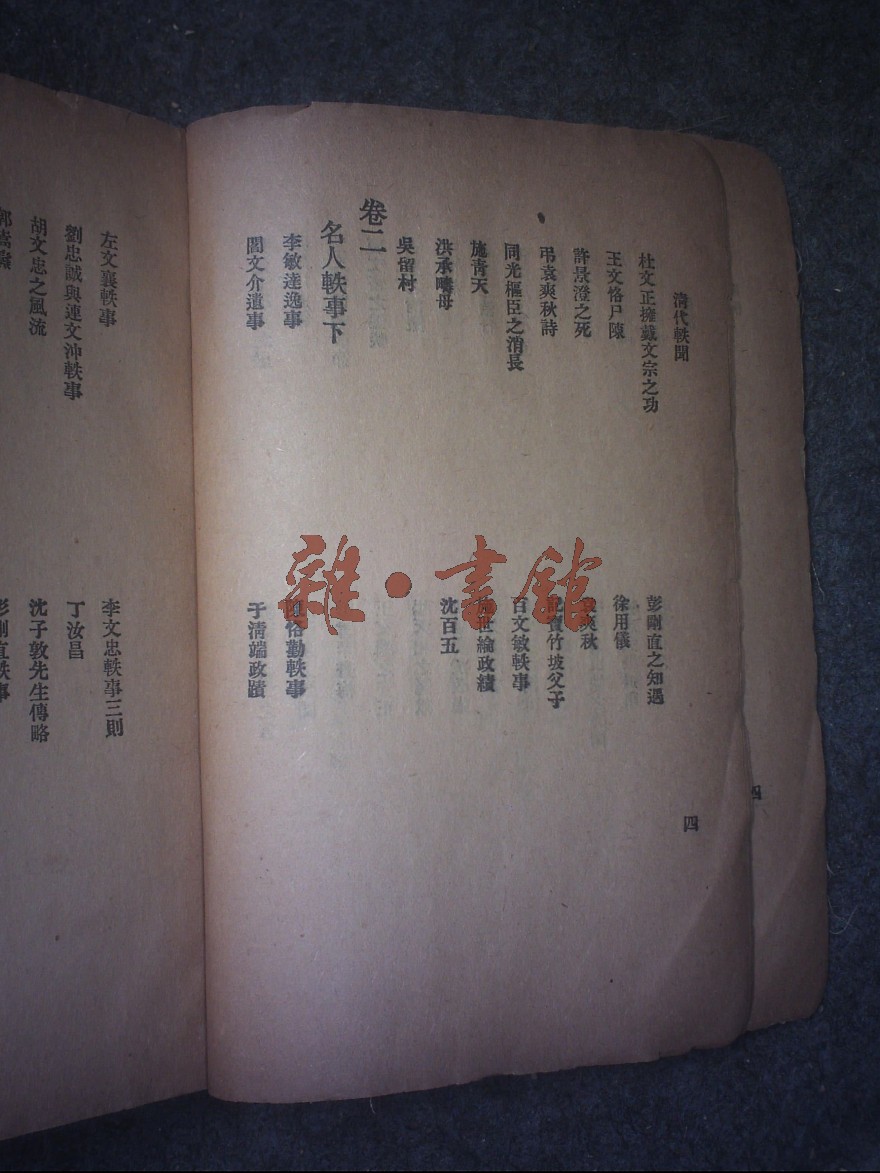 清代軼聞
杜文正擁戴文宗之功
彭剛直之知遇
王文恪尸陳
徐用儀
許景澄之死
袁爽秋
弔袁爽秋詩
記寶竹坡父子
同光樞臣之消長
百文敏軼事
施青天
施世綸政績
洪承疇母
沈百五
吳留村
卷二
名人軼事下
李敏達逸事
陳恪勤軼事
閻文介遺事
于清端政蹟
四
四
左文襄軼事
李文忠軼事三則
劉忠誠與連文沖軼事
丁汝昌
胡文忠之風流
沈子敦先生傳略
郭嵩燾
彭剛直軼事
雜·書館